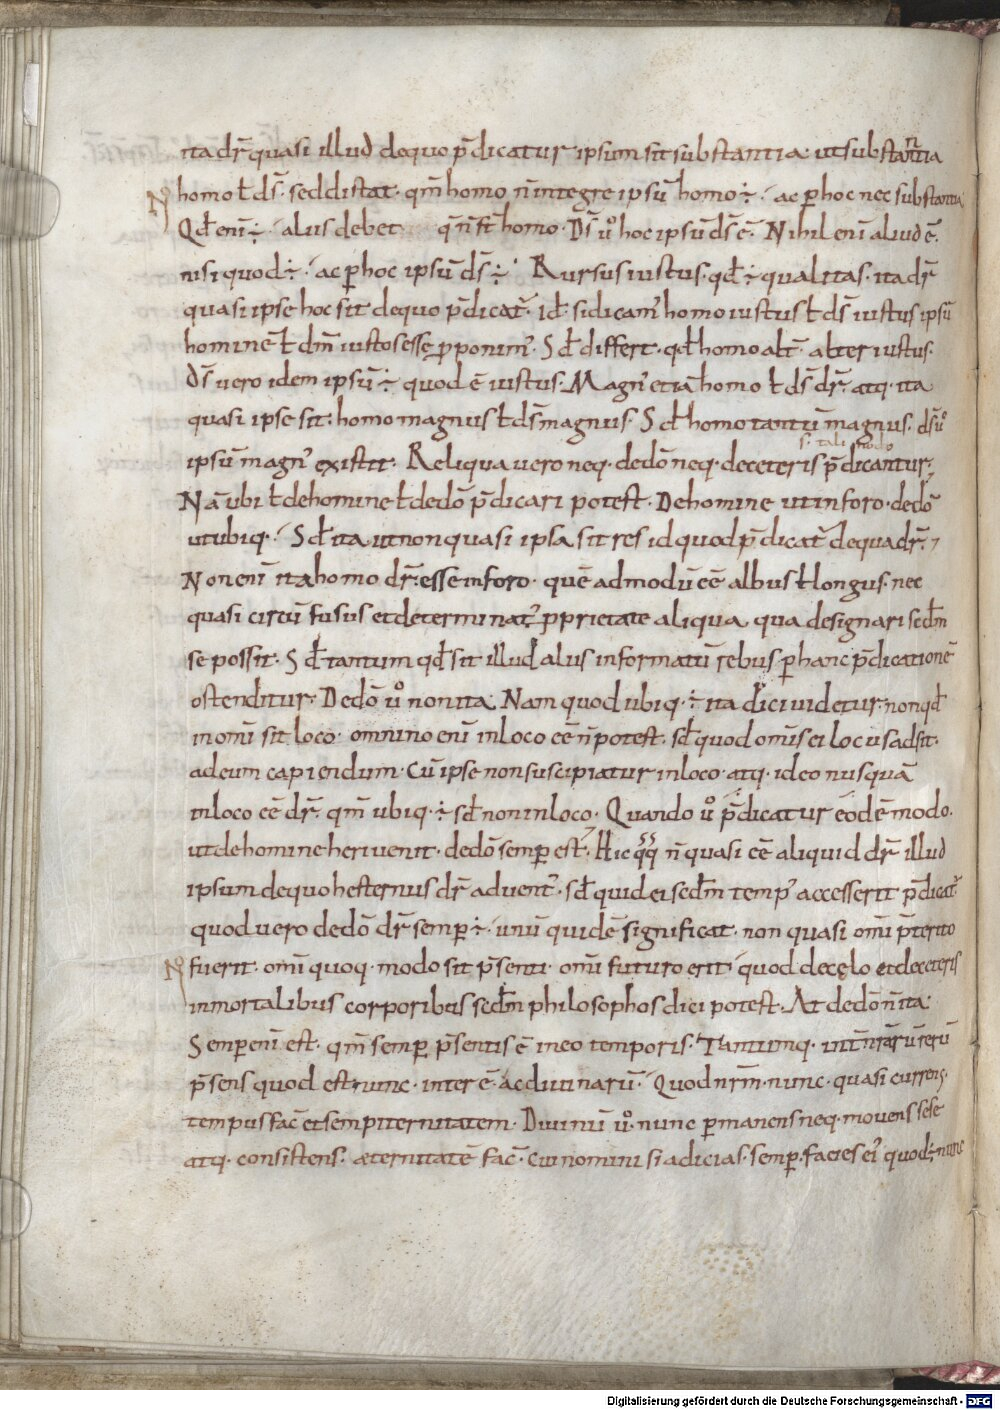 ita dr̄ quasi illud dequo p̄dicatur ipsum sit substantia· ut substantia
homo ł ds̄· sed distat· qm̄ homo n̄ integre ipsū homo ÷· ac ꝑ hoc nec substantia
Qđ eni ÷· alus debet qn̄ fit homo· Ds̄ ů hoc ipsū ds̄ ē· Nihil enī aliud ē
nisi quod ÷· ac ꝑ hoc ipsū ds̄ ÷· Rursus iustus· qđ ÷ qualitas· ita dr̄
quasi ipse hoc sit dequo p̄dicat̄· Id· si dicam̄ homo iustus ł ds̄ iustus ipsū
hominē ł dm̄ iustos esse ꝓponim̄· Sđ differt· qđ homo alt̄· alter iustus·
Ds̄ vero idem ipsū ÷ quod ē iustus· Magn̄ etiā homo ł ds̄ dr̄· atq· ita
quasi ipse sit· homo magnus ł ds̄ magnus· Sđ homo tantū magnus· ds̄ ů
s̄· tali modo
ipsū magn̄ existit· Reliqua vero neq· dedō neq· deceteris p̄dicantur·
Nā ubi ł dehomine ł dedō p̄dicari potest· Dehomine ut inforo· dedō
ut ubiq· Sđ ita ut non quasi ipsa sit res id quod p̄dicat̄ dequa dr̄·
Non enī ita homo dr̄ esse inforo· quē admodū eē albus ł longus· nec
quasi circū fusus et determinat̄ ꝓprietate aliqua qua designari scđm
se possit· Sđ tantum qđ sit illud alus informatū rebus ꝑ hanc p̄dicationē
ostenditur· Dedō ů non ita· Nam quod ubiq· ÷ ita dici videtur· non qđ
in omī sit loco· omnino enī inloco eē n̄ potest· sđ quod omīs ei locus adsit·
ad eum capiendum· Cū ipse non suscipiatur inloco· atq· ideo nusquā
inloco eē dr̄· qm̄ ubiq· ÷ sđ non inloco· Quando ů p̄dicatur eodē modo·
ut dehomine heri venit· dedō semꝑ est· Hic qq n̄ quasi eē aliquid dr̄ illud
ipsum dequo hesternus dr̄ advent̄· sđ quid ei scđm temp̄ accesserit p̄dicat̄·
quod vero dedō dr̄ semꝑ ÷· unū quidē significat· non quasi omī p̄terito
fuerit· omī quoq· modo sit p̄senti· omī futuro erit· quod decęlo et deceteris
inmortalibus corporibus scđm philosophos dici potest· At dedō n̄ ita·
Semꝑ enī est· qm̄ semꝑ p̄sentis ē in eo temporis· Tantumq· int̄ nr̄arū rerū
p̄sens quod est nunc· inter ē· ac divinarū· Quod nr̄m· nunc· quasi currens·
tempus fac̄ et sempiternitatem· Divinū ů· nunc ꝑmanens neq· movens sese
atq· consistens· æternitatē fac̄· Cui nomini si adicias· semꝑ· facies ei̓ quod ÷ nunc
Digitalisierung gefördert durch die Deutsche Forschungsgemeinschaft - DFG